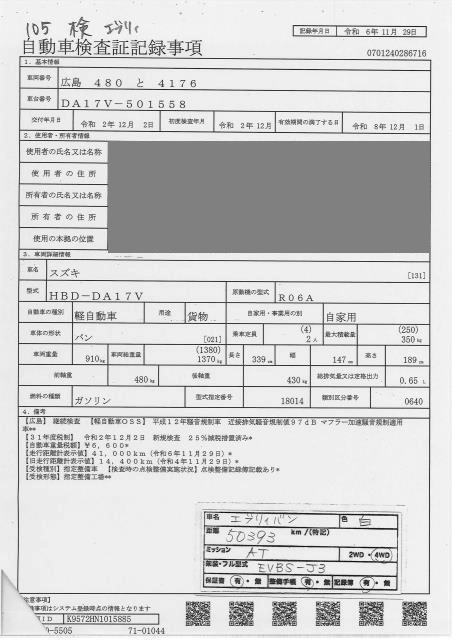 105 検 エブリィ
自動車検査証記録事項
記録年月日 令和 6年11月29日
0701240286716
1. 基本情報
車両番号 広島 480 と 4176
車台番号 DA17V-501558
交付年月日 令和 2年12月 2日 初度検査年月 令和 2年12月 有効期間の満了する日 令和 8年12月 1日
2. 使用者・所有者情報
使用者の氏名又は名称
使用者の住所
所有者の氏名又は名称
所有者の住所
使用の本拠の位置
3. 車両詳細情報
車名 スズキ [131]
型式 HBD-DA17V 原動機の型式 R06A
自動車の種別 軽自動車 用途 貨物 自家用・事業用の別 自家用
車体の形状 バン [021] 乗車定員 (4) 2人 最大積載量 (250) 350kg
車両重量 910kg 車両総重量 (1380) 1370kg 長さ 339cm 幅 147cm 高さ 189cm
前軸重 480kg 後軸重 430kg 総排気量又は定格出力 0.65L
燃料の種類 ガソリン 型式指定番号 18014 類別区分番号 0640
4. 備考
【広島】 継続検査 【軽自動車OSS】 平成12年騒音規制車 近接排気騒音規制値97dB マフラー加速騒音規制適用
車**
【31年度税制】 令和2年12月2日 新規検査 25%減税措置済み*
【自動車重量税額】¥6,600*
【走行距離計表示値】41,000km(令和6年11月29日)*
【旧走行距離計表示値】14,400km(令和4年11月29日)*
【受検種別】指定整備車 【検査時の点検整備実施状況】点検整備記録簿記載あり*
【受検形態】指定整備工場**
車名 エブリィバン 色 白
距離 50393 km/(特記)
ミッション AT 2WD・4WD
架装・フル型式 EVBS-J3
保証書 有・無 整備手帳 有・無 記録簿 有・無
注意事項】
事項はシステム登録時点の情報となります
ID K9572HN1015885
-5505 71-01044